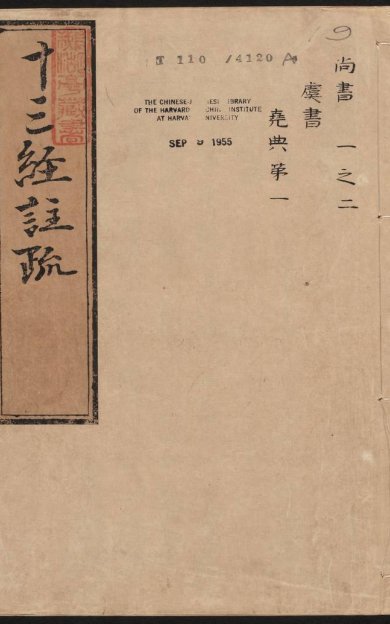 9
尚書 一之二
虞書
堯典第一
T 110 /4120 A
THE CHINESE-J ESE LIBRARY
OF THE HARVARD CHIN INSTITUTE
AT HARVA NIVERSITY
SEP 9 1955
十三經註疏